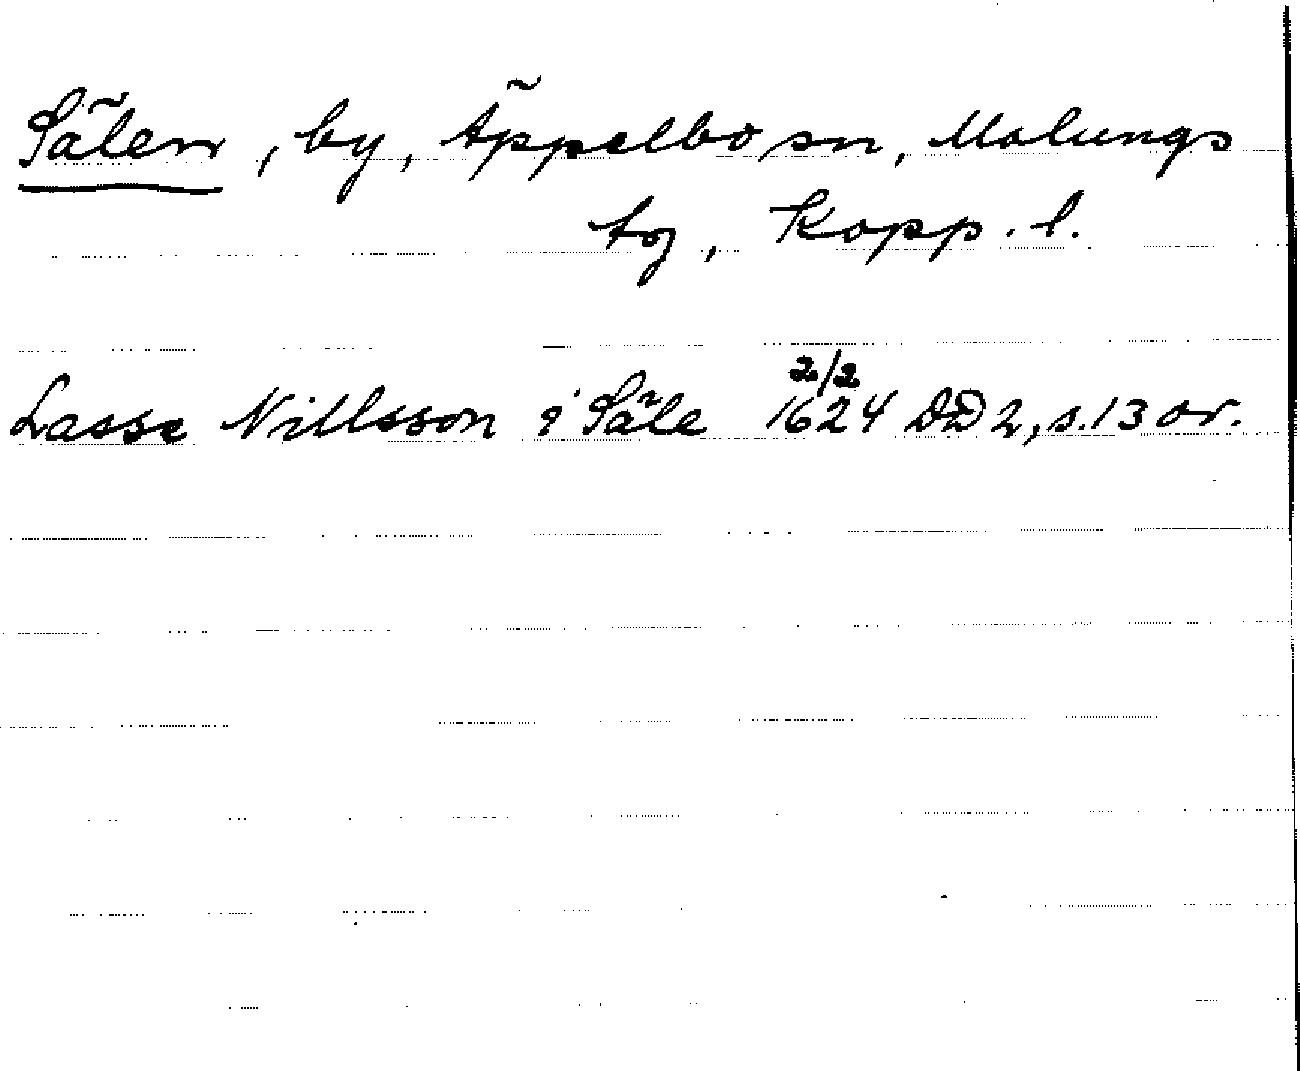 Sälen, by, Äppelbo sn, Malungs
tg, Kopp. l.
Lasse Nillsson i Säle 2/2 1624 DD 2, s. 13 or.